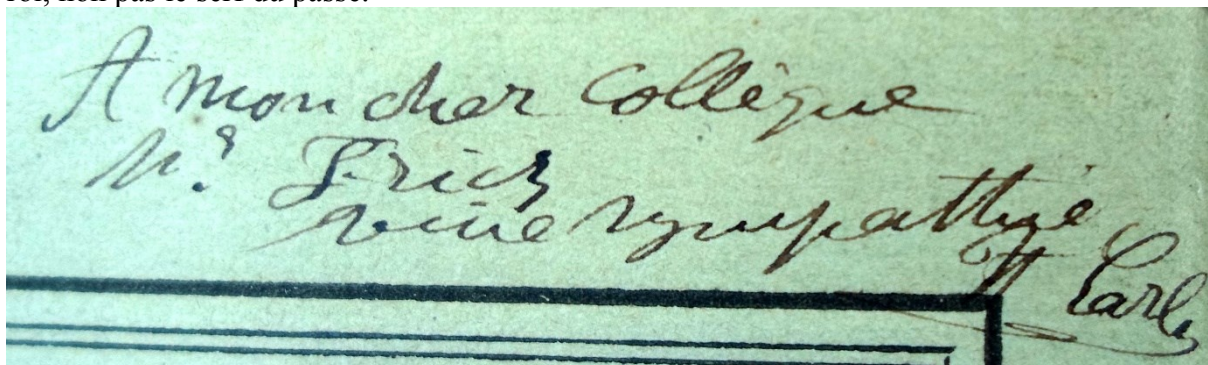 A mon cher collègue
Mr Frick
vive sympathie
H Carly